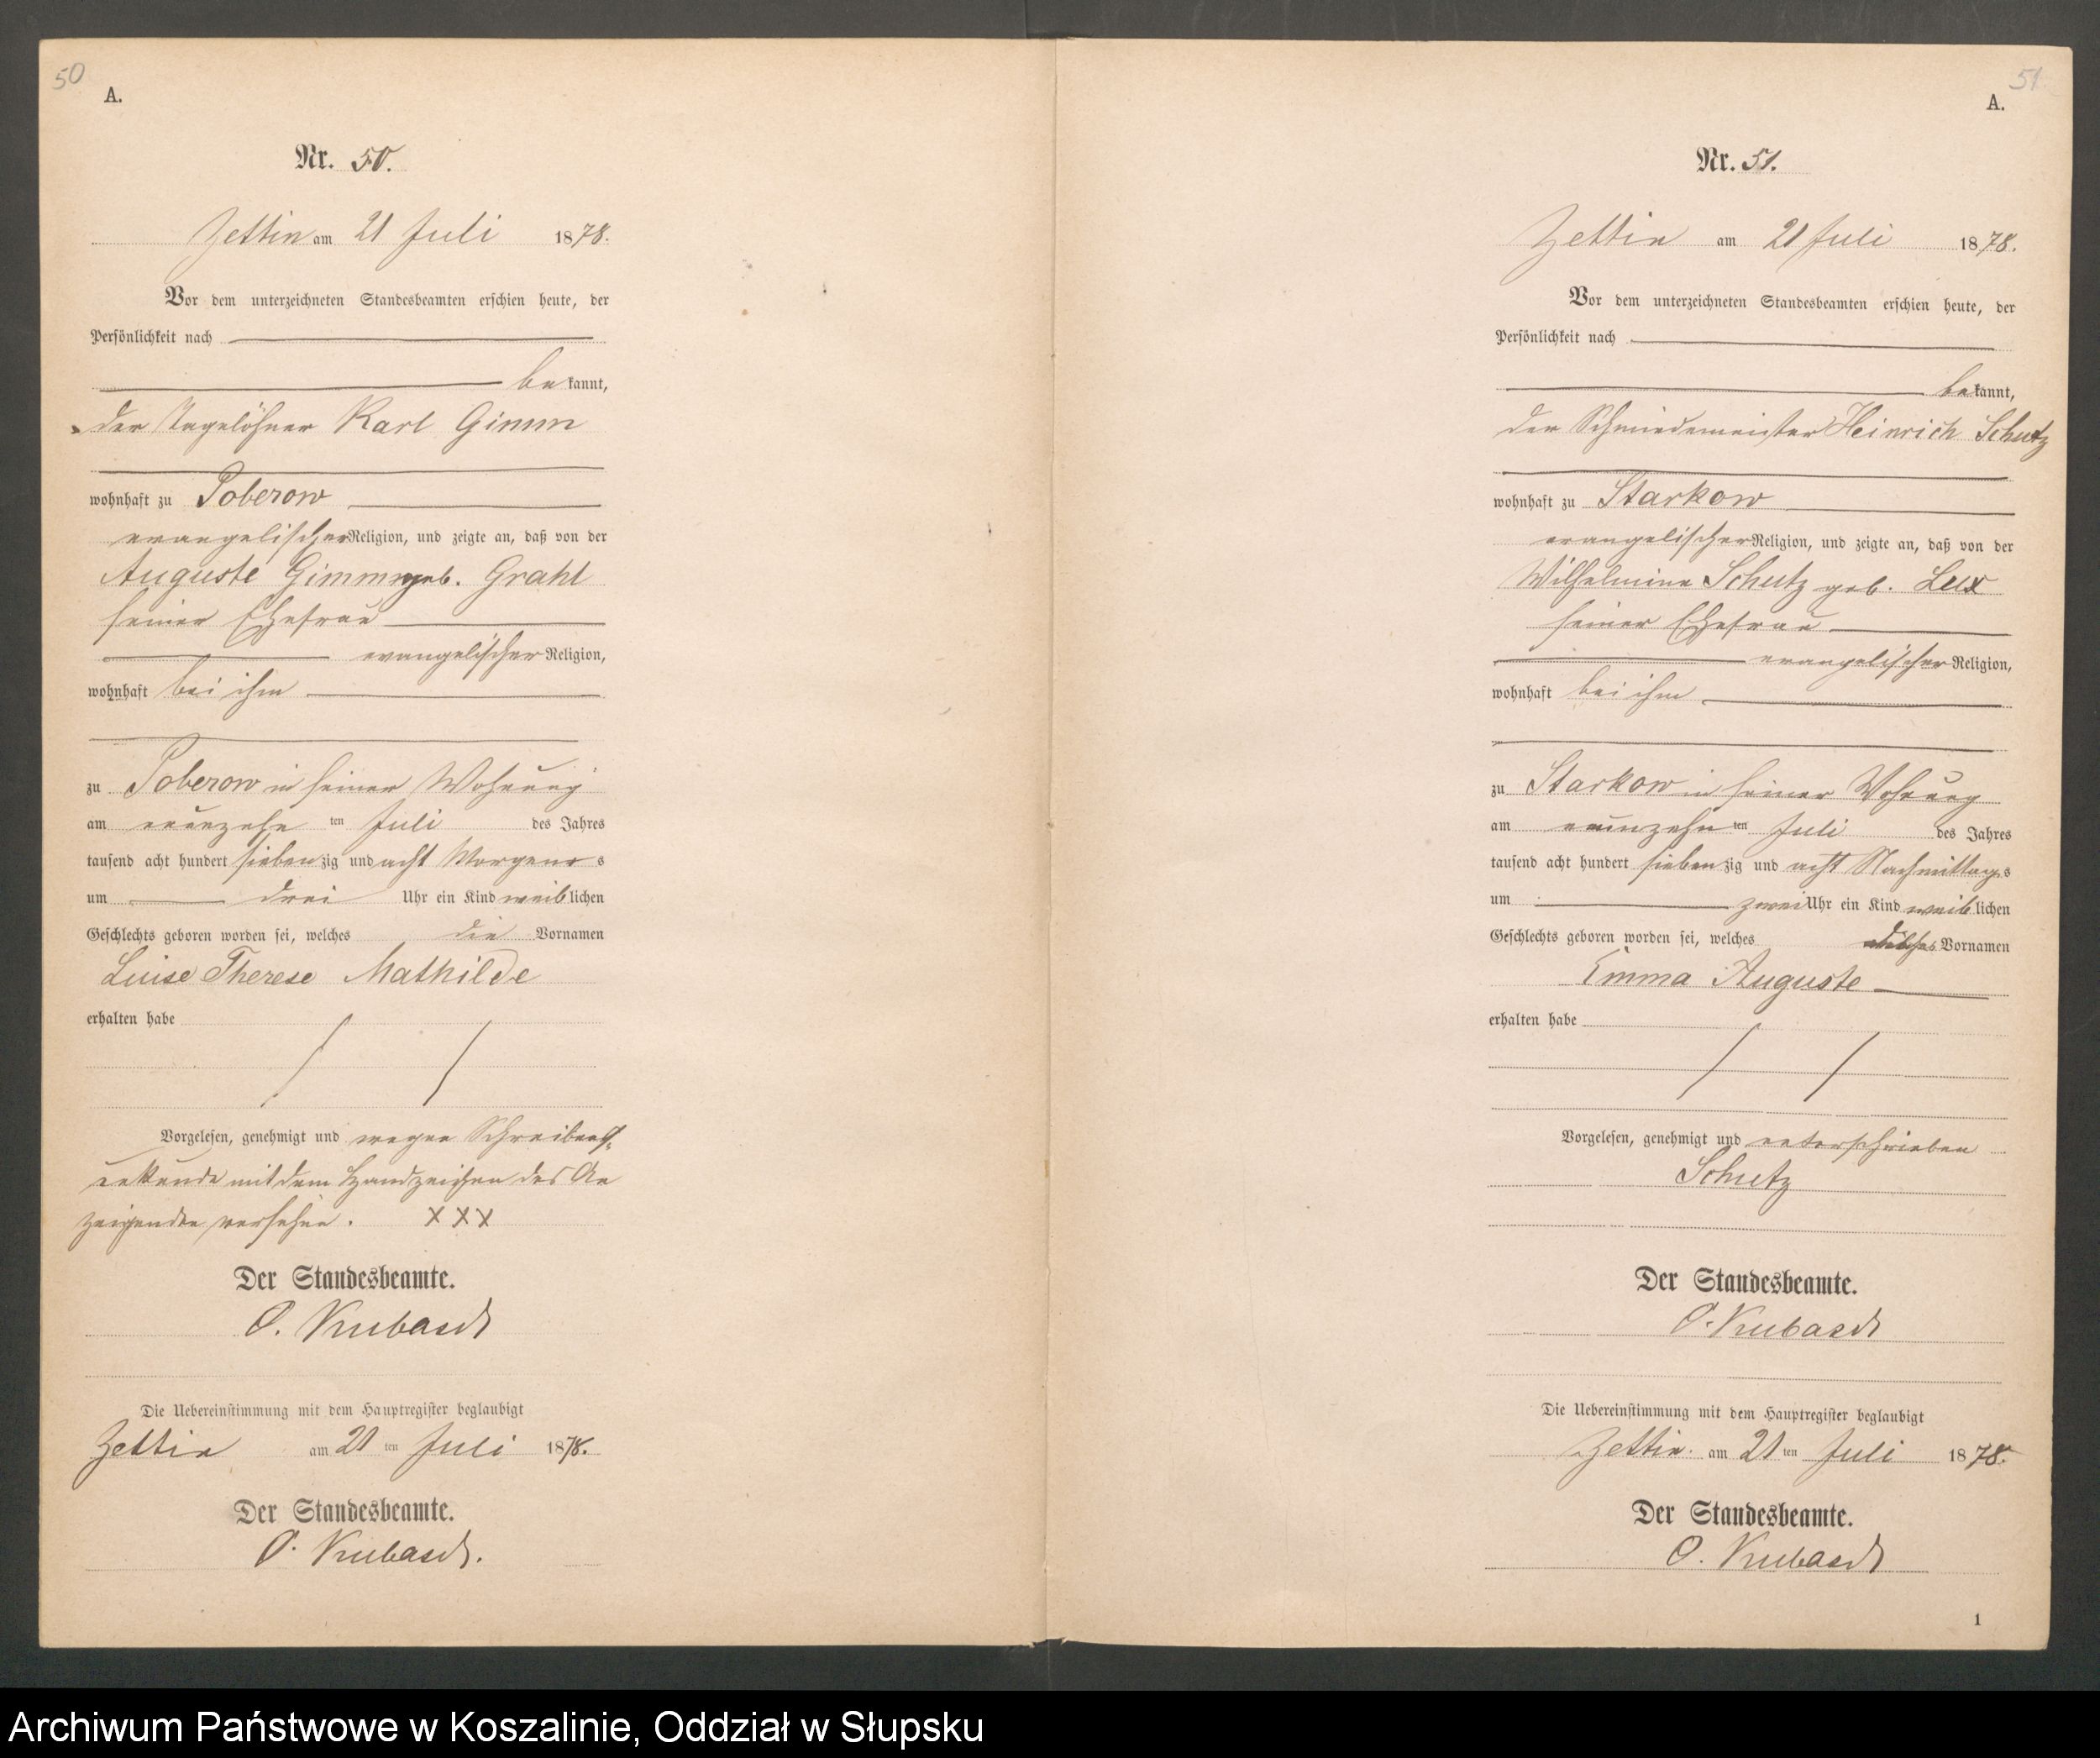 50
A.
Nr. 50.
Zettin am 21 Juli 1878.
Vor dem unterzeichneten Standesbeamten erschien heute, der
Persönlichkeit nach
bekannt,
der Tagelöhner Karl Gimm
wohnhaft zu Poberow
evangelischer Religion, und zeigte an, daß von der
Auguste Gimm geb. Grahl
seiner Ehefrau
evangelischer Religion,
wohnhaft bei ihm
zu Poberow in seiner Wohnung
am neunzehn ten Juli des Jahres
tausend acht hundert siebenzig und acht Morgens
um drei Uhr ein Kind weiblichen
Geschlechts geboren worden sei, welches die Vornamen
Luise Therese Mathilde
erhalten habe
Vorgelesen, genehmigt und wegen Schreibens
unkunde mit dem Handzeichen des An
zeigenden versehen. XXX
Der Standesbeamte.
O. Kubasch
Die Uebereinstimmung mit dem Hauptregister beglaubigt
Zettin am 21 ten Juli 1878.
Der Standesbeamte.
O. Kubasch.
51
A.
Nr. 51.
Zettin am 21 Juli 1878.
Vor dem unterzeichneten Standesbeamten erschien heute, der
Persönlichkeit nach
bekannt,
der Schmiedemeister Heinrich Schutz
wohnhaft zu Starkow
evangelischer Religion, und zeigte an, daß von der
Wilhelmine Schutz geb. Lux
seiner Ehefrau
evangelischer Religion,
wohnhaft bei ihm
zu Starkow in seiner Wohnung
am neunzehn ten Juli des Jahres
tausend acht hundert siebenzig und acht Nachmittags
um zwei Uhr ein Kind weiblichen
Geschlechts geboren worden sei, welches Vornamen
Emma Auguste
erhalten habe
Vorgelesen, genehmigt und unterschrieben
Schutz
Der Standesbeamte.
O. Kubasch
Die Uebereinstimmung mit dem Hauptregister beglaubigt
Zettin. am 21 ten Juli 1878.
Der Standesbeamte.
O. Kubasch
1
Archiwum Państwowe w Koszalinie, Oddział w Słupsku